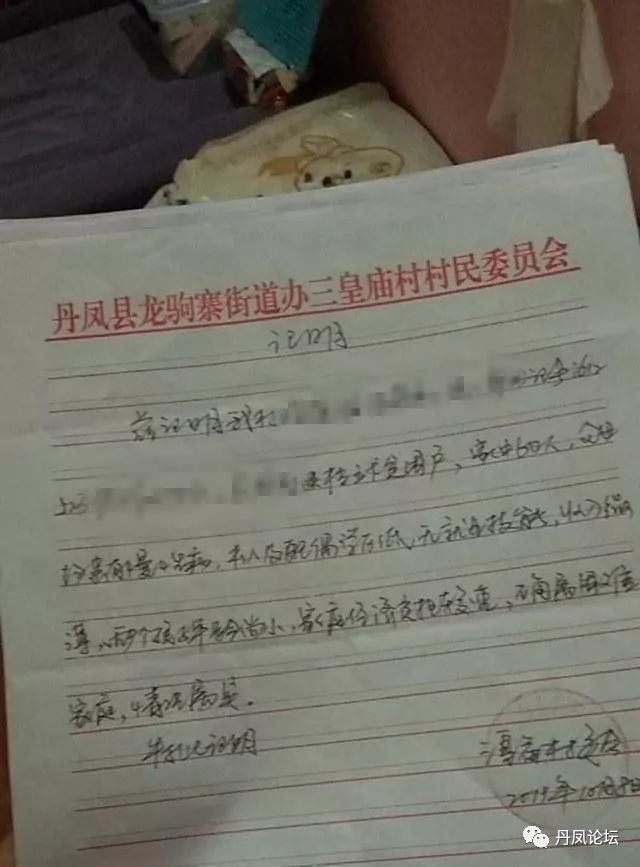 丹凤县龙驹寨街道办三皇庙村村民委员会
证明
兹证明我村
建档立卡贫困户,家中6口人,父母
均患有慢性病,本人及配偶学历低,无就业技能,收入微
薄,两个孩子年龄尚小,家庭经济负担较重,确属困难
家庭,情况属实。
特此证明
2019年10月8日
丹凤论坛